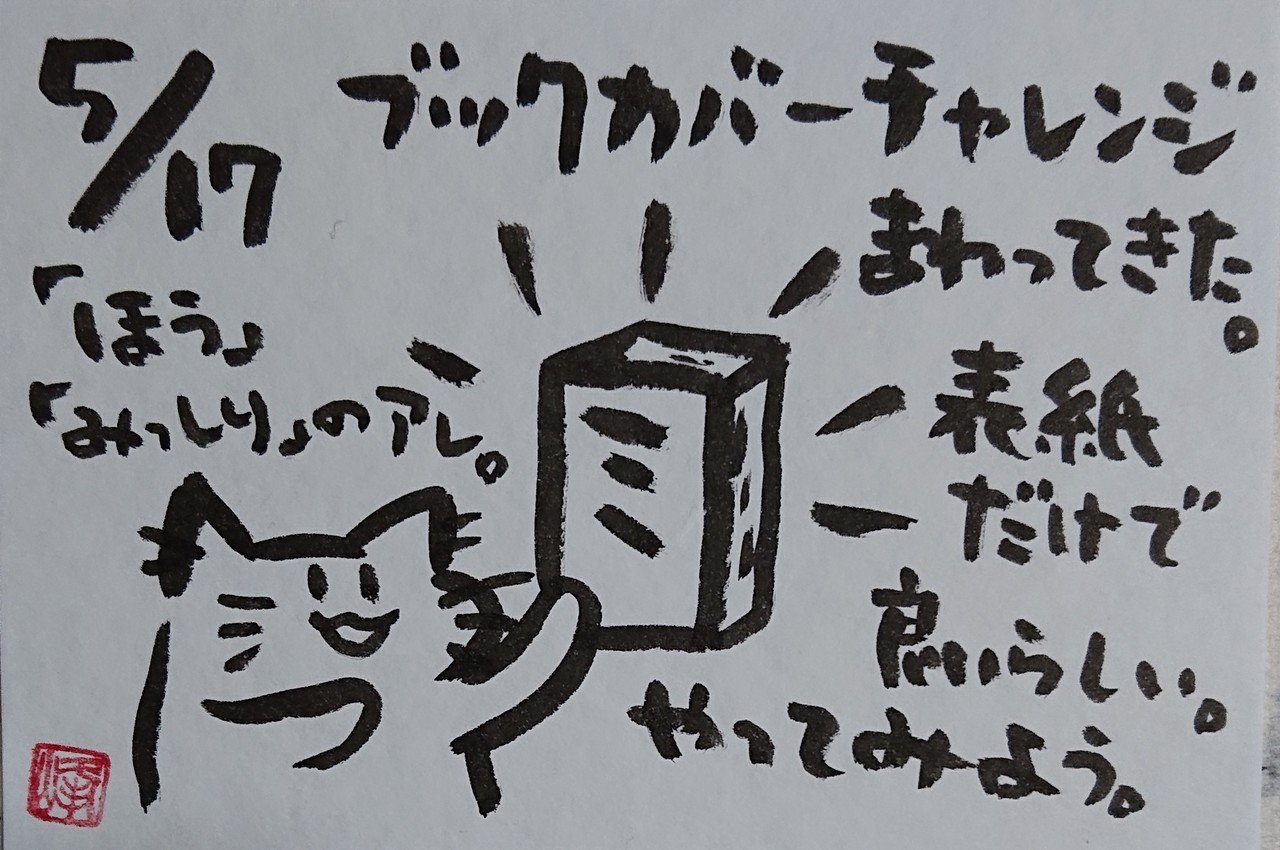 5/17
ブックカバーチャレンジ
まわってきた。
表紙
だけで
良いらしい。
やってみよう。
「ほう」
「みっしり」のアレ。